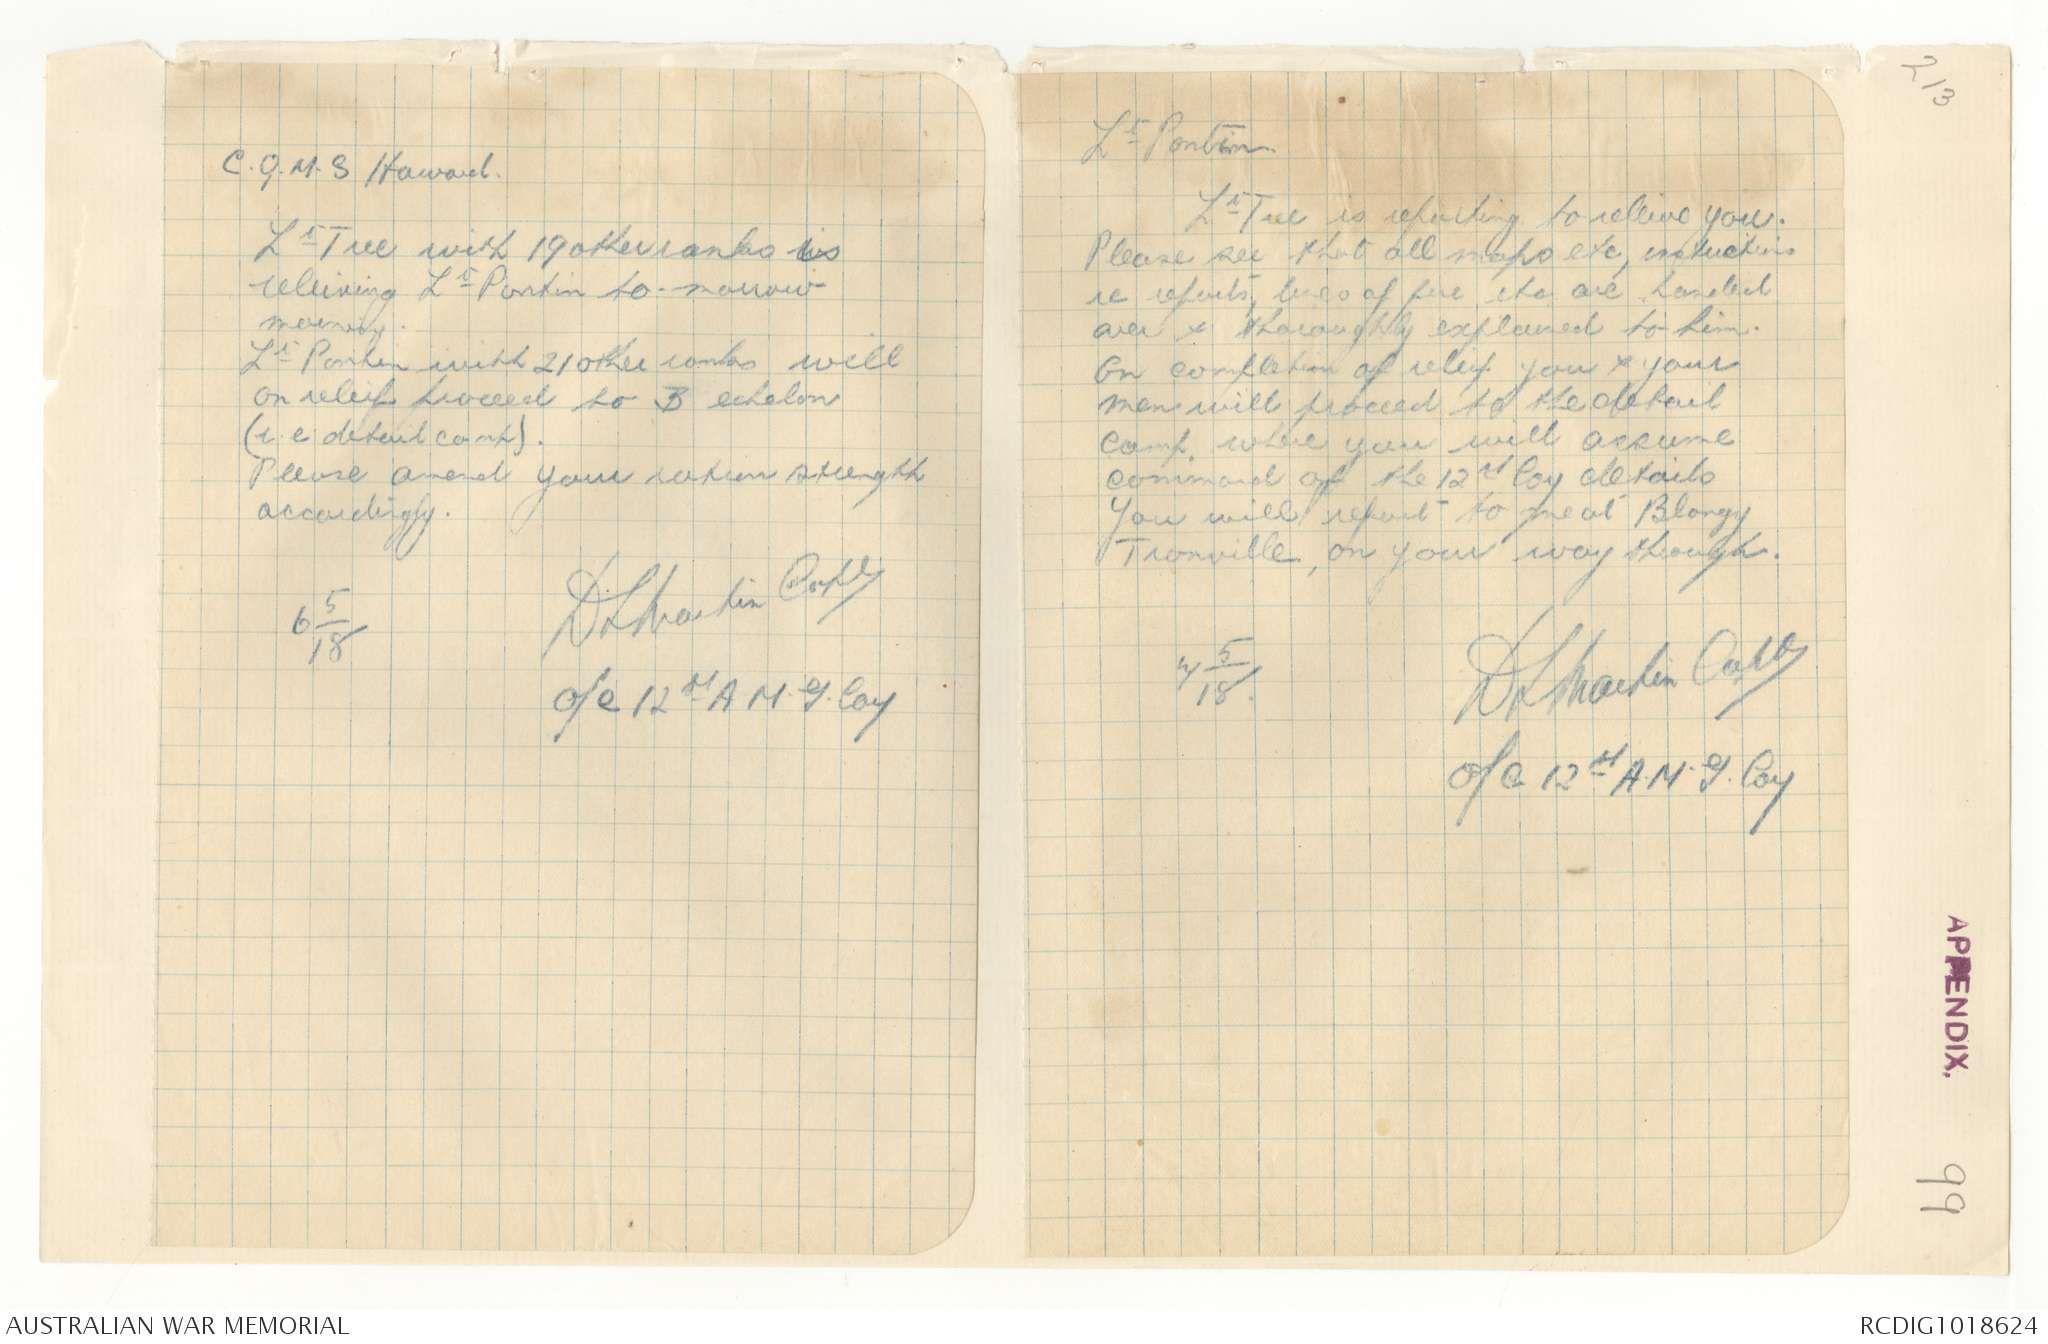 C.Q.M.S Howard.
Lt Tree with 19 other ranks is
relieving Lt Pontin to-morrow
morning.
Lt Pontin with 21 other ranks will
on relief proceed to B echelon
(i.e detail camp).
Please amend your ration strength
accordingly.
6 5/18
D L Martin Capt
O/C 12th A M.G. Coy
Lt Pontin
Lt Tree is reporting to relieve you.
Please see that all maps etc, instructions
re reports, lines of fire etc are handed
over & thoroughly explained to him.
On completion of relief you & your
men will proceed to the detail
camp, where you will assume
command of the 12th Coy details
You will report to me at Blangy
Tronville, on your way through.
5/18.
D L Martin Capt
O/C 12th A.M.G. Coy
213
APPENDIX,
99
AUSTRALIAN WAR MEMORIAL
RCDIG1018624